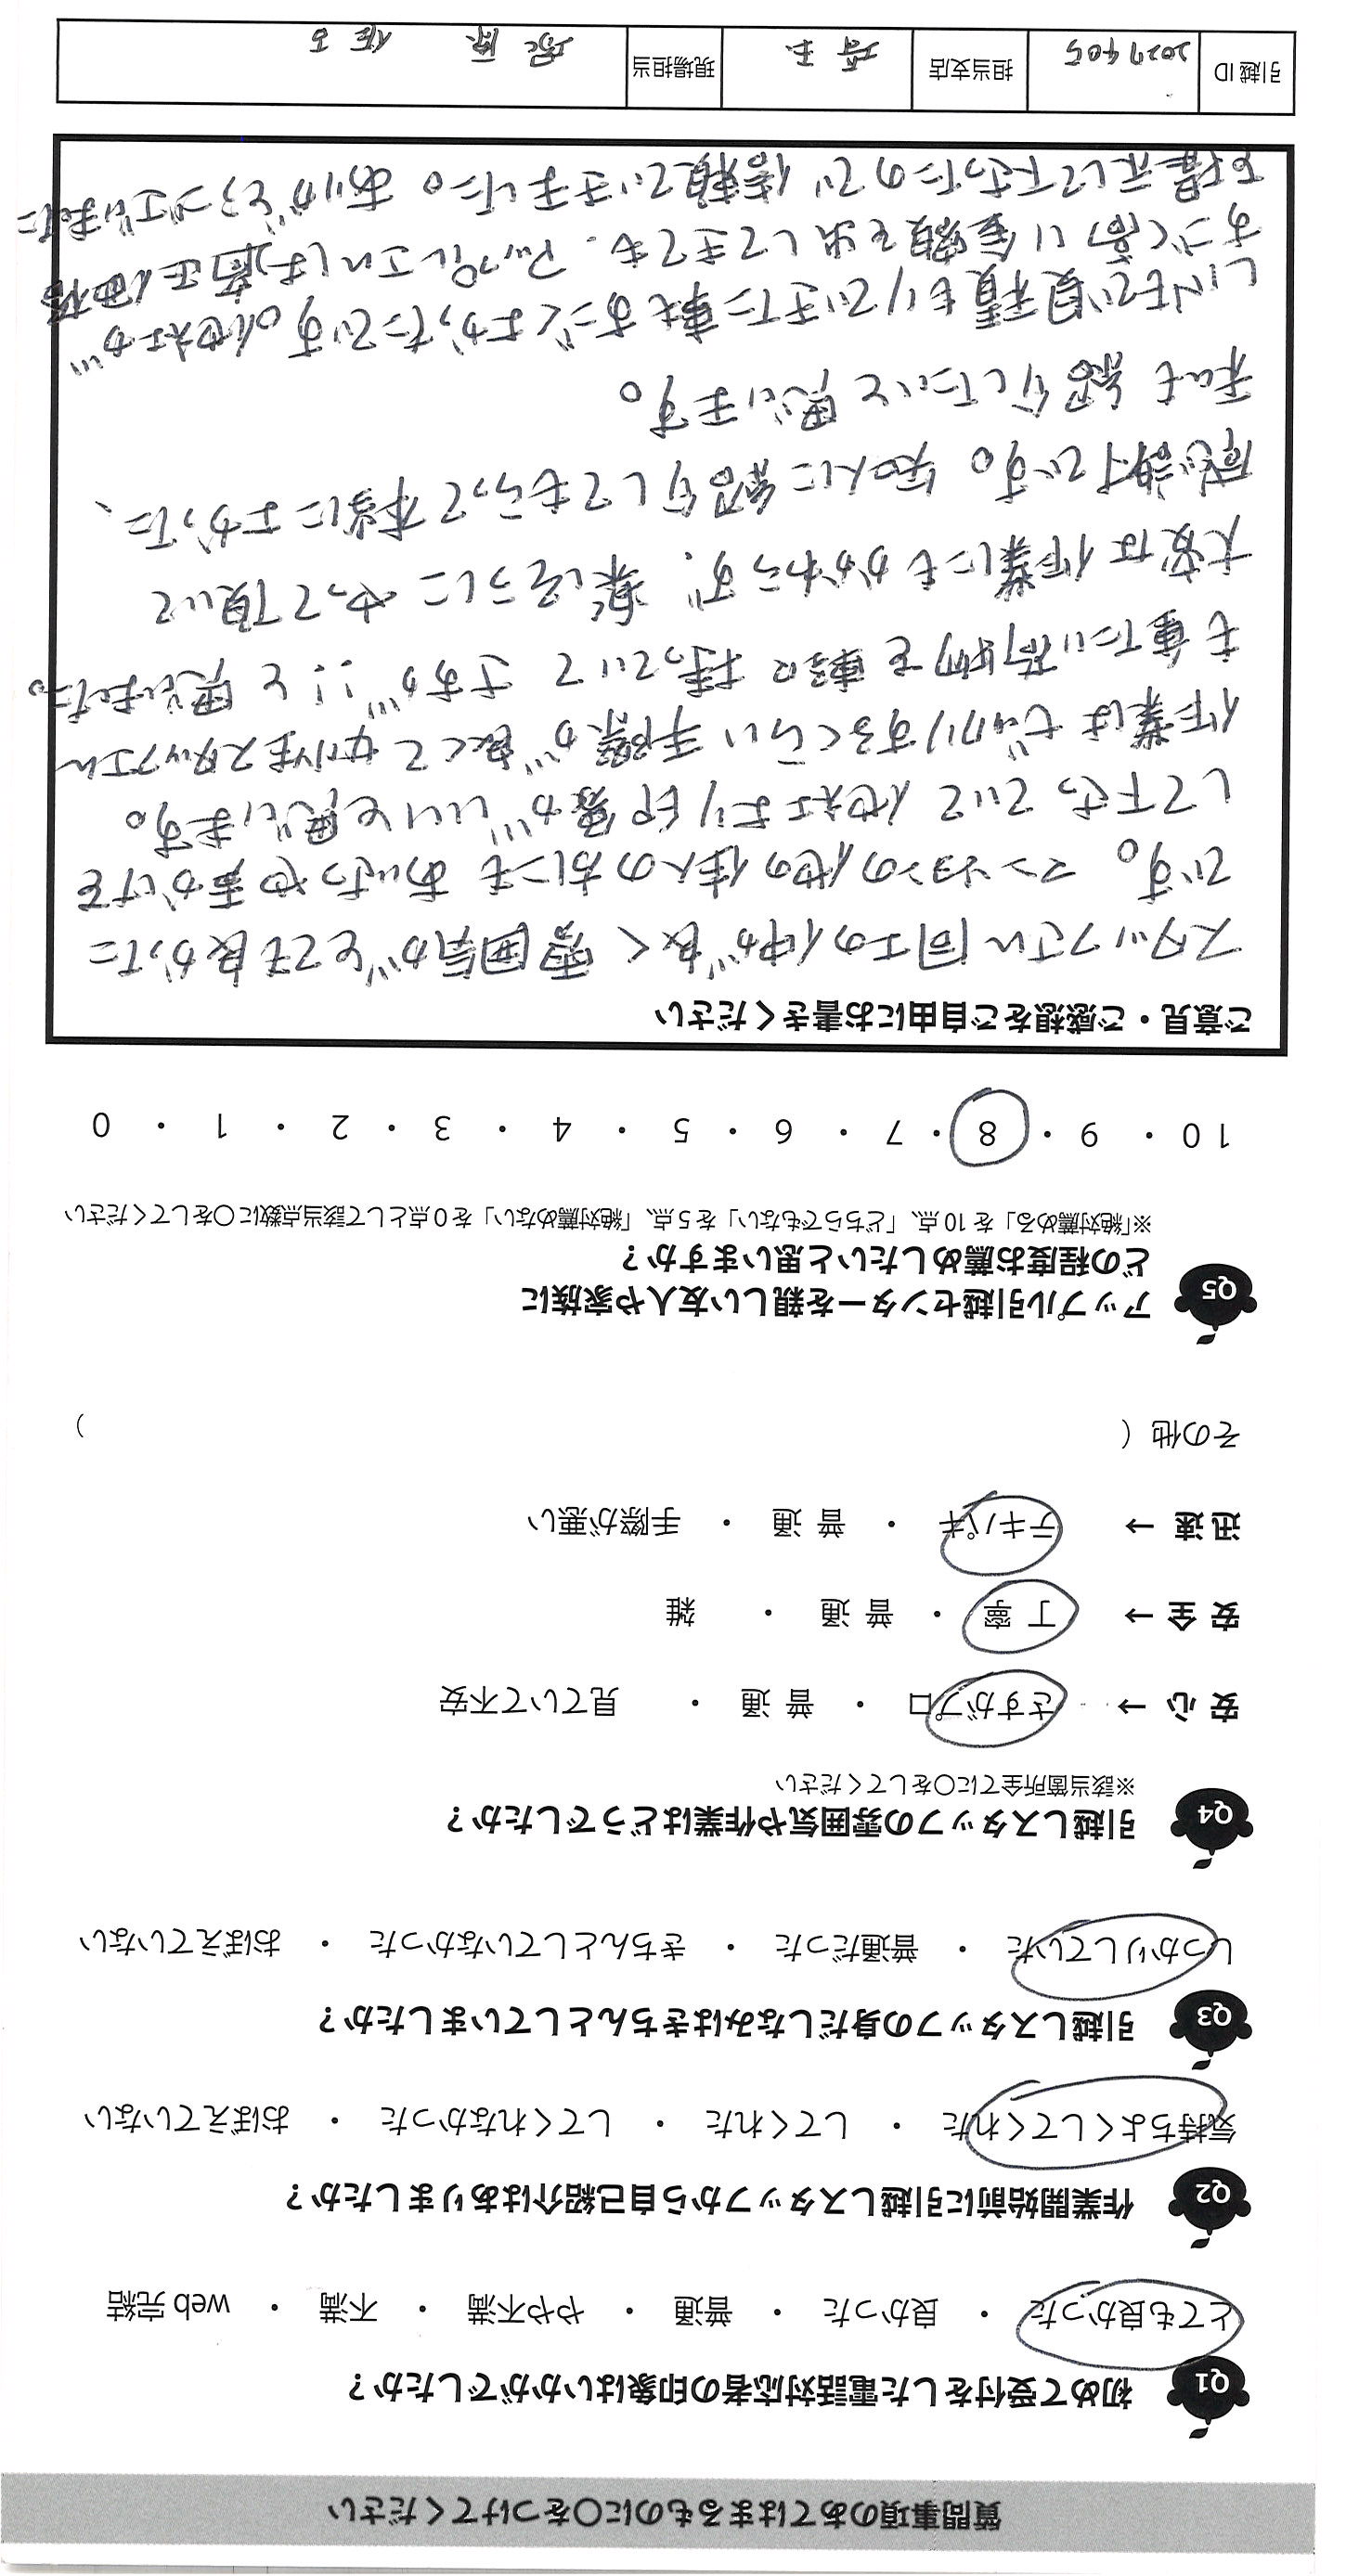 質問事項のあてはまるものに〇をつけてください
Q1 初めて受付をした電話対応者の印象はいかがでしたか？
とても良かった ・ 良かった ・ 普通 ・ やや不満 ・ 不満 ・ web 完結
Q2 作業開始前に引越しスタッフから自己紹介はありましたか？
気持ちよくしてくれた ・ してくれた ・ してくれなかった ・ おぼえていない
Q3 引越しスタッフの身だしなみはきちんとしていましたか？
しっかりしていた ・ 普通だった ・ きちんとしていなかった ・ おぼえていない
Q4 引越しスタッフの雰囲気や作業はどうでしたか？
※該当箇所全てに〇をしてください
安 心 → さすがプロ ・ 普 通 ・ 見ていて不安
安 全 → 丁 寧 ・ 普 通 ・ 雑
迅 速 → テキパキ ・ 普 通 ・ 手際が悪い
その他（ ）
Q5 アップル引越センターを親しい友人や家族に
どの程度お薦めしたいと思いますか？
※「絶対薦める」を 10 点、「どちらでもない」を 5 点、「絶対薦めない」を 0 点として該当点数に〇をしてください
10 ・ 9 ・ 8 ・ 7 ・ 6 ・ 5 ・ 4 ・ 3 ・ 2 ・ 1 ・ 0
ご意見・ご感想をご自由にお書きください
スタッフさん同士の仲が良く雰囲気がとても良かった
です。マンションの他の住人の方にもあいさつや声かけを
して下さっていて他社より印象がいいと思います。
作業はビックリするくらい手際が良くて女性スタッフさん
も重たい荷物を軽々持っていて さすが!!と思いました。
大変な作業にもかかわらず、楽しそうにやって頂いて
感謝です。知人に紹介してもらって本当によかった、
私も紹介したいと思います。
LINEで見積もりできた事もすごくよかったです。他社が
すごく高い金額を出してきても、アップルさんは適正価格
を提示して下さったので信頼できました。ありがとうございました
引越 ID 2027405 担当支店 埼玉 現場担当 塚原 佐古